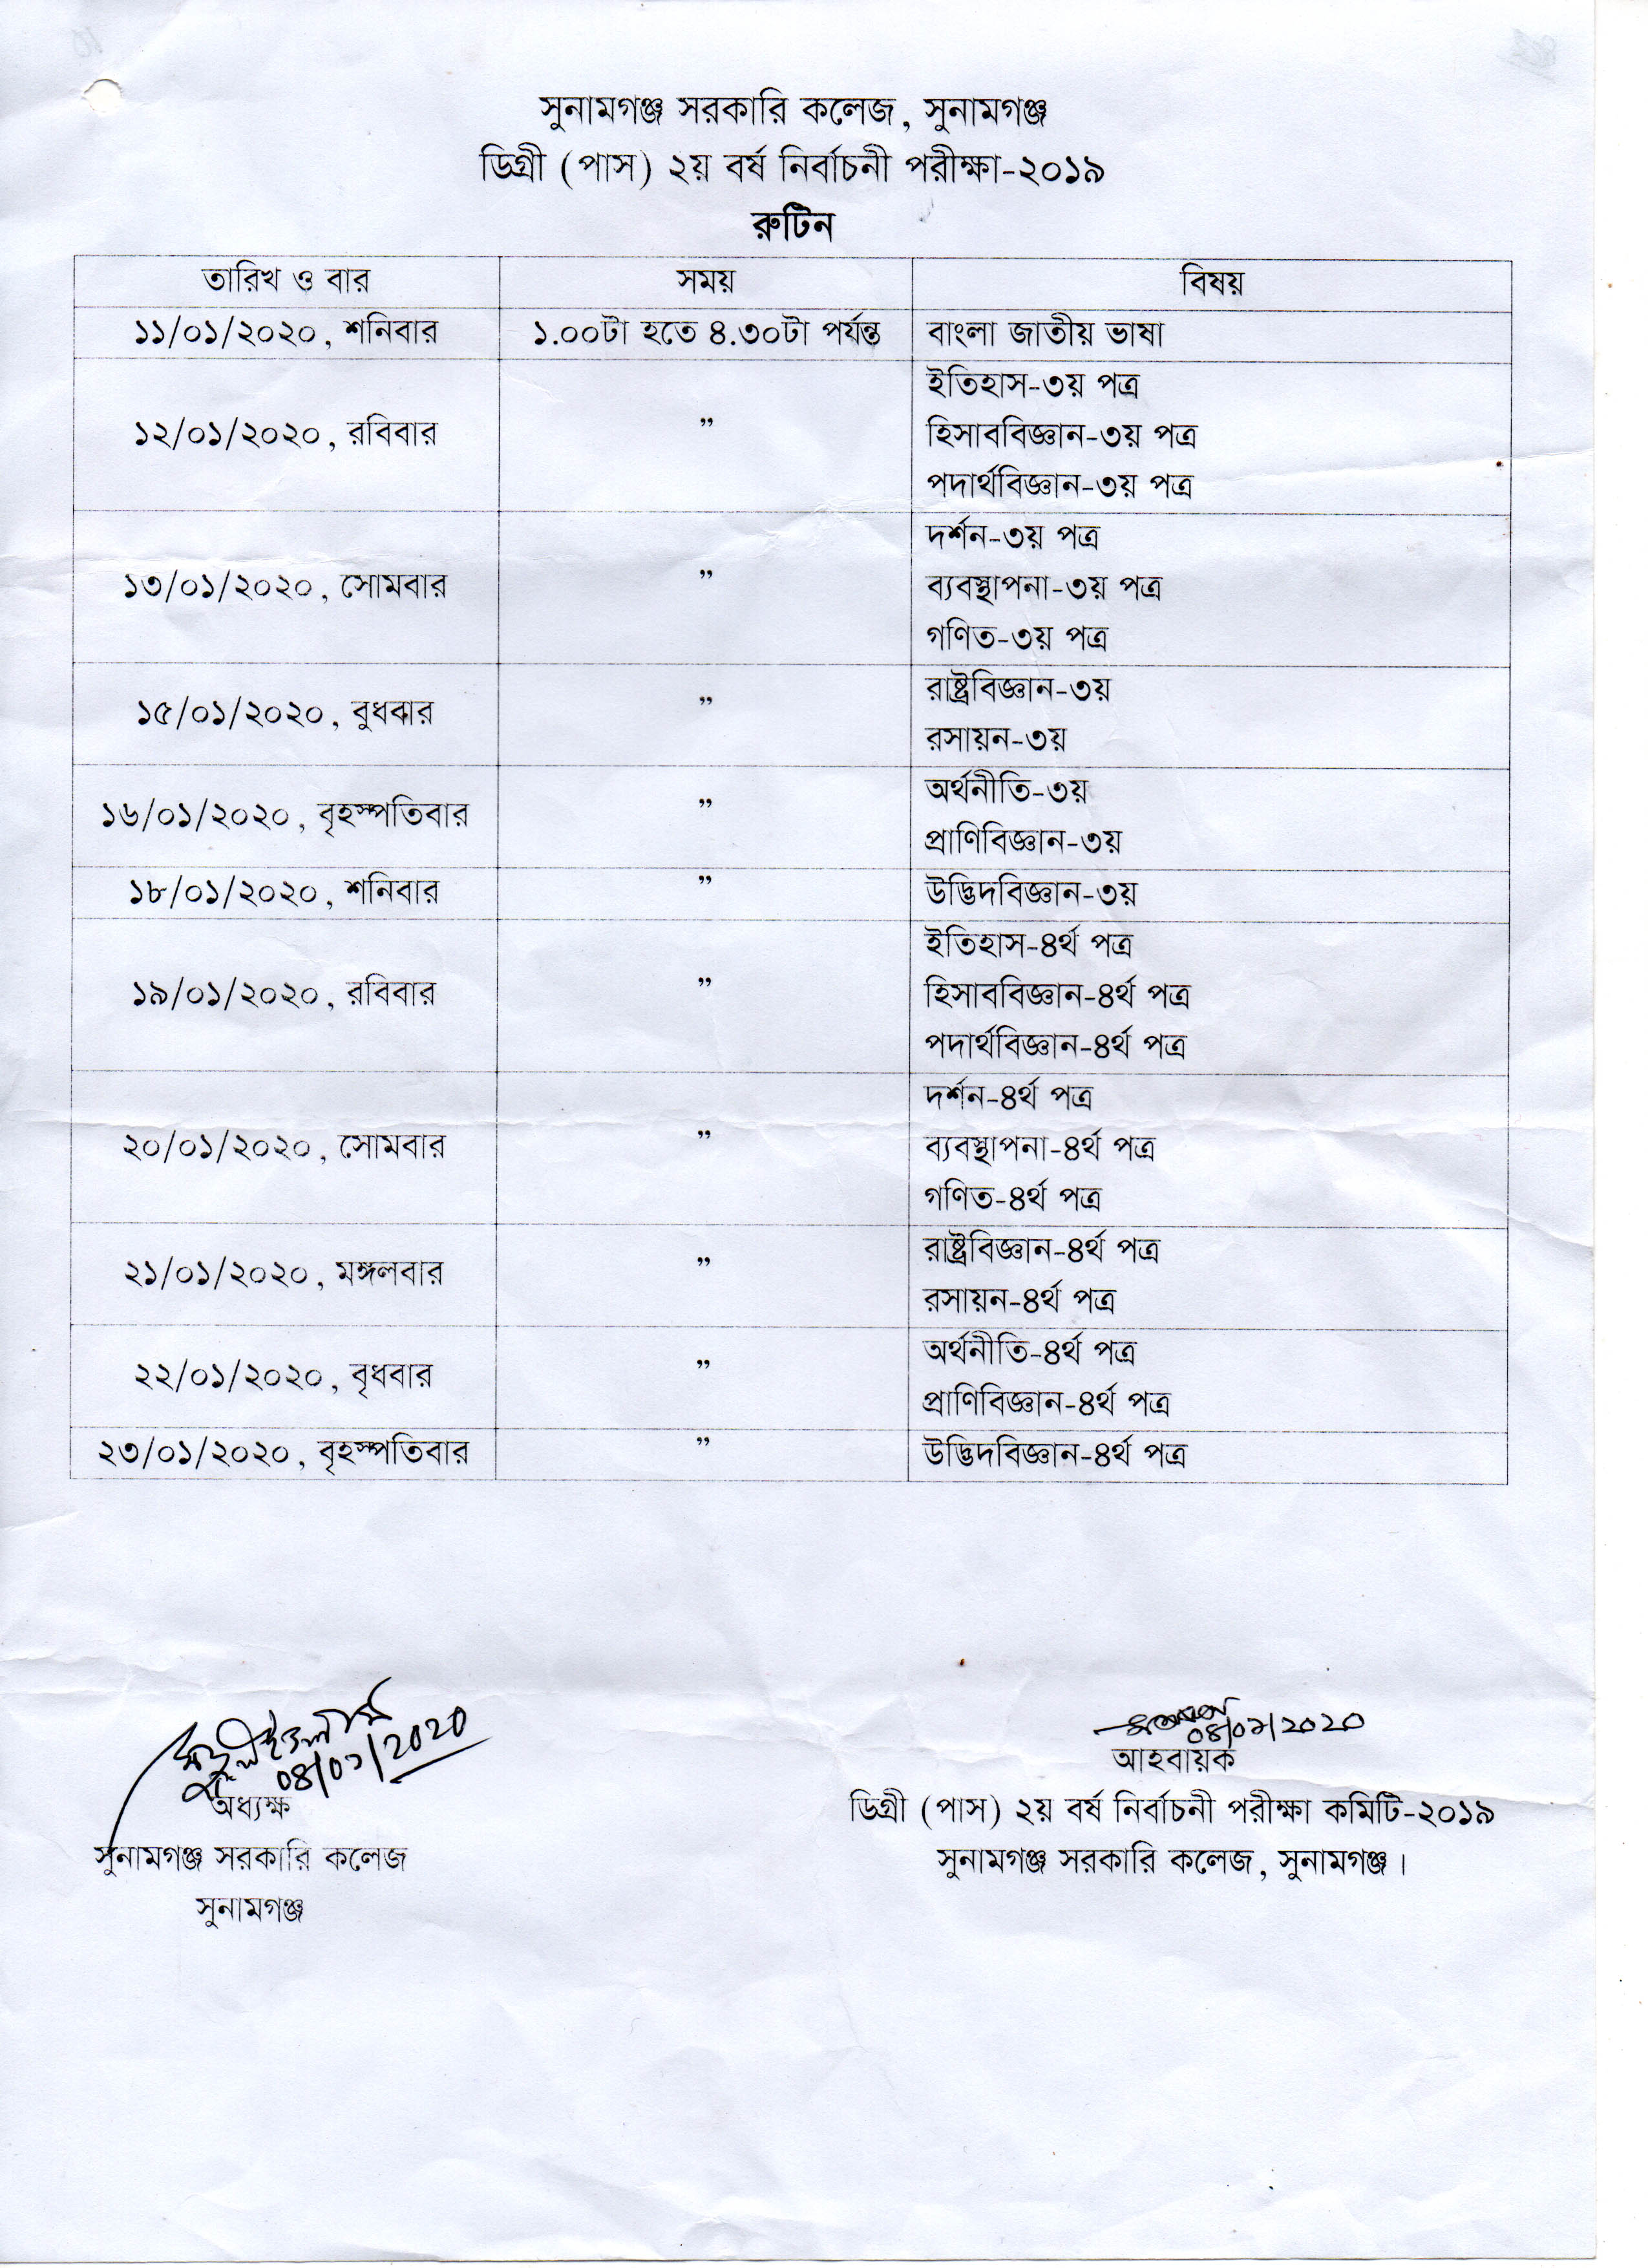 সুনামগঞ্জ সরকারি কলেজ, সুনামগঞ্জ
ডিগ্রী (পাস) ২য় বর্ষ নির্বাচনী পরীক্ষা-২০১৯
রুটিন
তারিখ ও বার সময় বিষয়
১১/০১/২০২০, শনিবার ১.০০টা হতে ৪.৩০টা পর্যন্ত বাংলা জাতীয় ভাষা
ইতিহাস-৩য় পত্র
১২/০১/২০২০, রবিবার ” হিসাববিজ্ঞান-৩য় পত্র
পদার্থবিজ্ঞান-৩য় পত্র
দর্শন-৩য় পত্র
১৩/০১/২০২০, সোমবার ” ব্যবস্থাপনা-৩য় পত্র
গণিত-৩য় পত্র
রাষ্ট্রবিজ্ঞান-৩য়
১৫/০১/২০২০, বুধবার ”
রসায়ন-৩য়
অর্থনীতি-৩য়
১৬/০১/২০২০, বৃহস্পতিবার ”
প্রাণিবিজ্ঞান-৩য়
১৮/০১/২০২০, শনিবার ” উদ্ভিদবিজ্ঞান-৩য়
ইতিহাস-৪র্থ পত্র
১৯/০১/২০২০, রবিবার ” হিসাববিজ্ঞান-৪র্থ পত্র
পদার্থবিজ্ঞান-৪র্থ পত্র
দর্শন-৪র্থ পত্র
২০/০১/২০২০, সোমবার ” ব্যবস্থাপনা-৪র্থ পত্র
গণিত-৪র্থ পত্র
রাষ্ট্রবিজ্ঞান-৪র্থ পত্র
২১/০১/২০২০, মঙ্গলবার ”
রসায়ন-৪র্থ পত্র
অর্থনীতি-৪র্থ পত্র
২২/০১/২০২০, বৃধবার ”
প্রাণিবিজ্ঞান-৪র্থ পত্র
২৩/০১/২০২০, বৃহস্পতিবার ” উদ্ভিদবিজ্ঞান-৪র্থ পত্র
০৪/০১/২০২০
০৪/০১/২০২০
অধ্যক্ষ
সুনামগঞ্জ সরকারি কলেজ
সুনামগঞ্জ
আহবায়ক
ডিগ্রী (পাস) ২য় বর্ষ নির্বাচনী পরীক্ষা কমিটি-২০১৯
সুনামগঞ্জ সরকারি কলেজ, সুনামগঞ্জ।